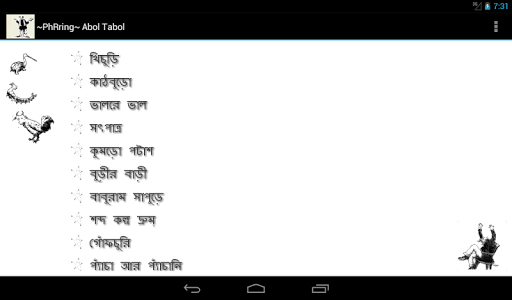 ~PhRring~ Abol Tabol
7:31
খিচুড়ি
কাঠবুড়ো
ভালরে ভাল
সৎপাত্র
কুমড়ো পটাশ
বুড়ীর বাড়ী
বাবুরাম সাপুড়ে
শব্দ কল্প দ্রুম
গোঁফচুরি
প্যাঁচা আর প্যাঁচানি